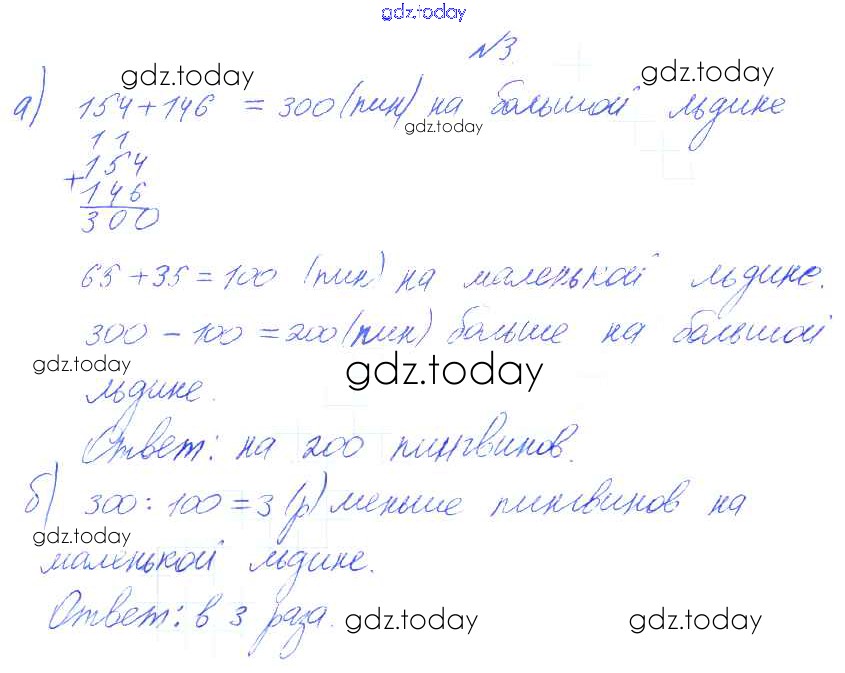 gdz.today
№3.
gdz.today gdz.today
а) 154+146 = 300 (пин) на большой льдине
gdz.today
11
+154
146
300
65+35=100 (пин) на маленькой льдине.
300-100=200 (пин) больше на большой
gdz.today gdz.today
льдине.
Ответ: на 200 пингвинов.
б) 300:100=3 (р) меньше пингвинов на
gdz.today
маленькой льдине.
Ответ: в 3 раза.
gdz.today gdz.today